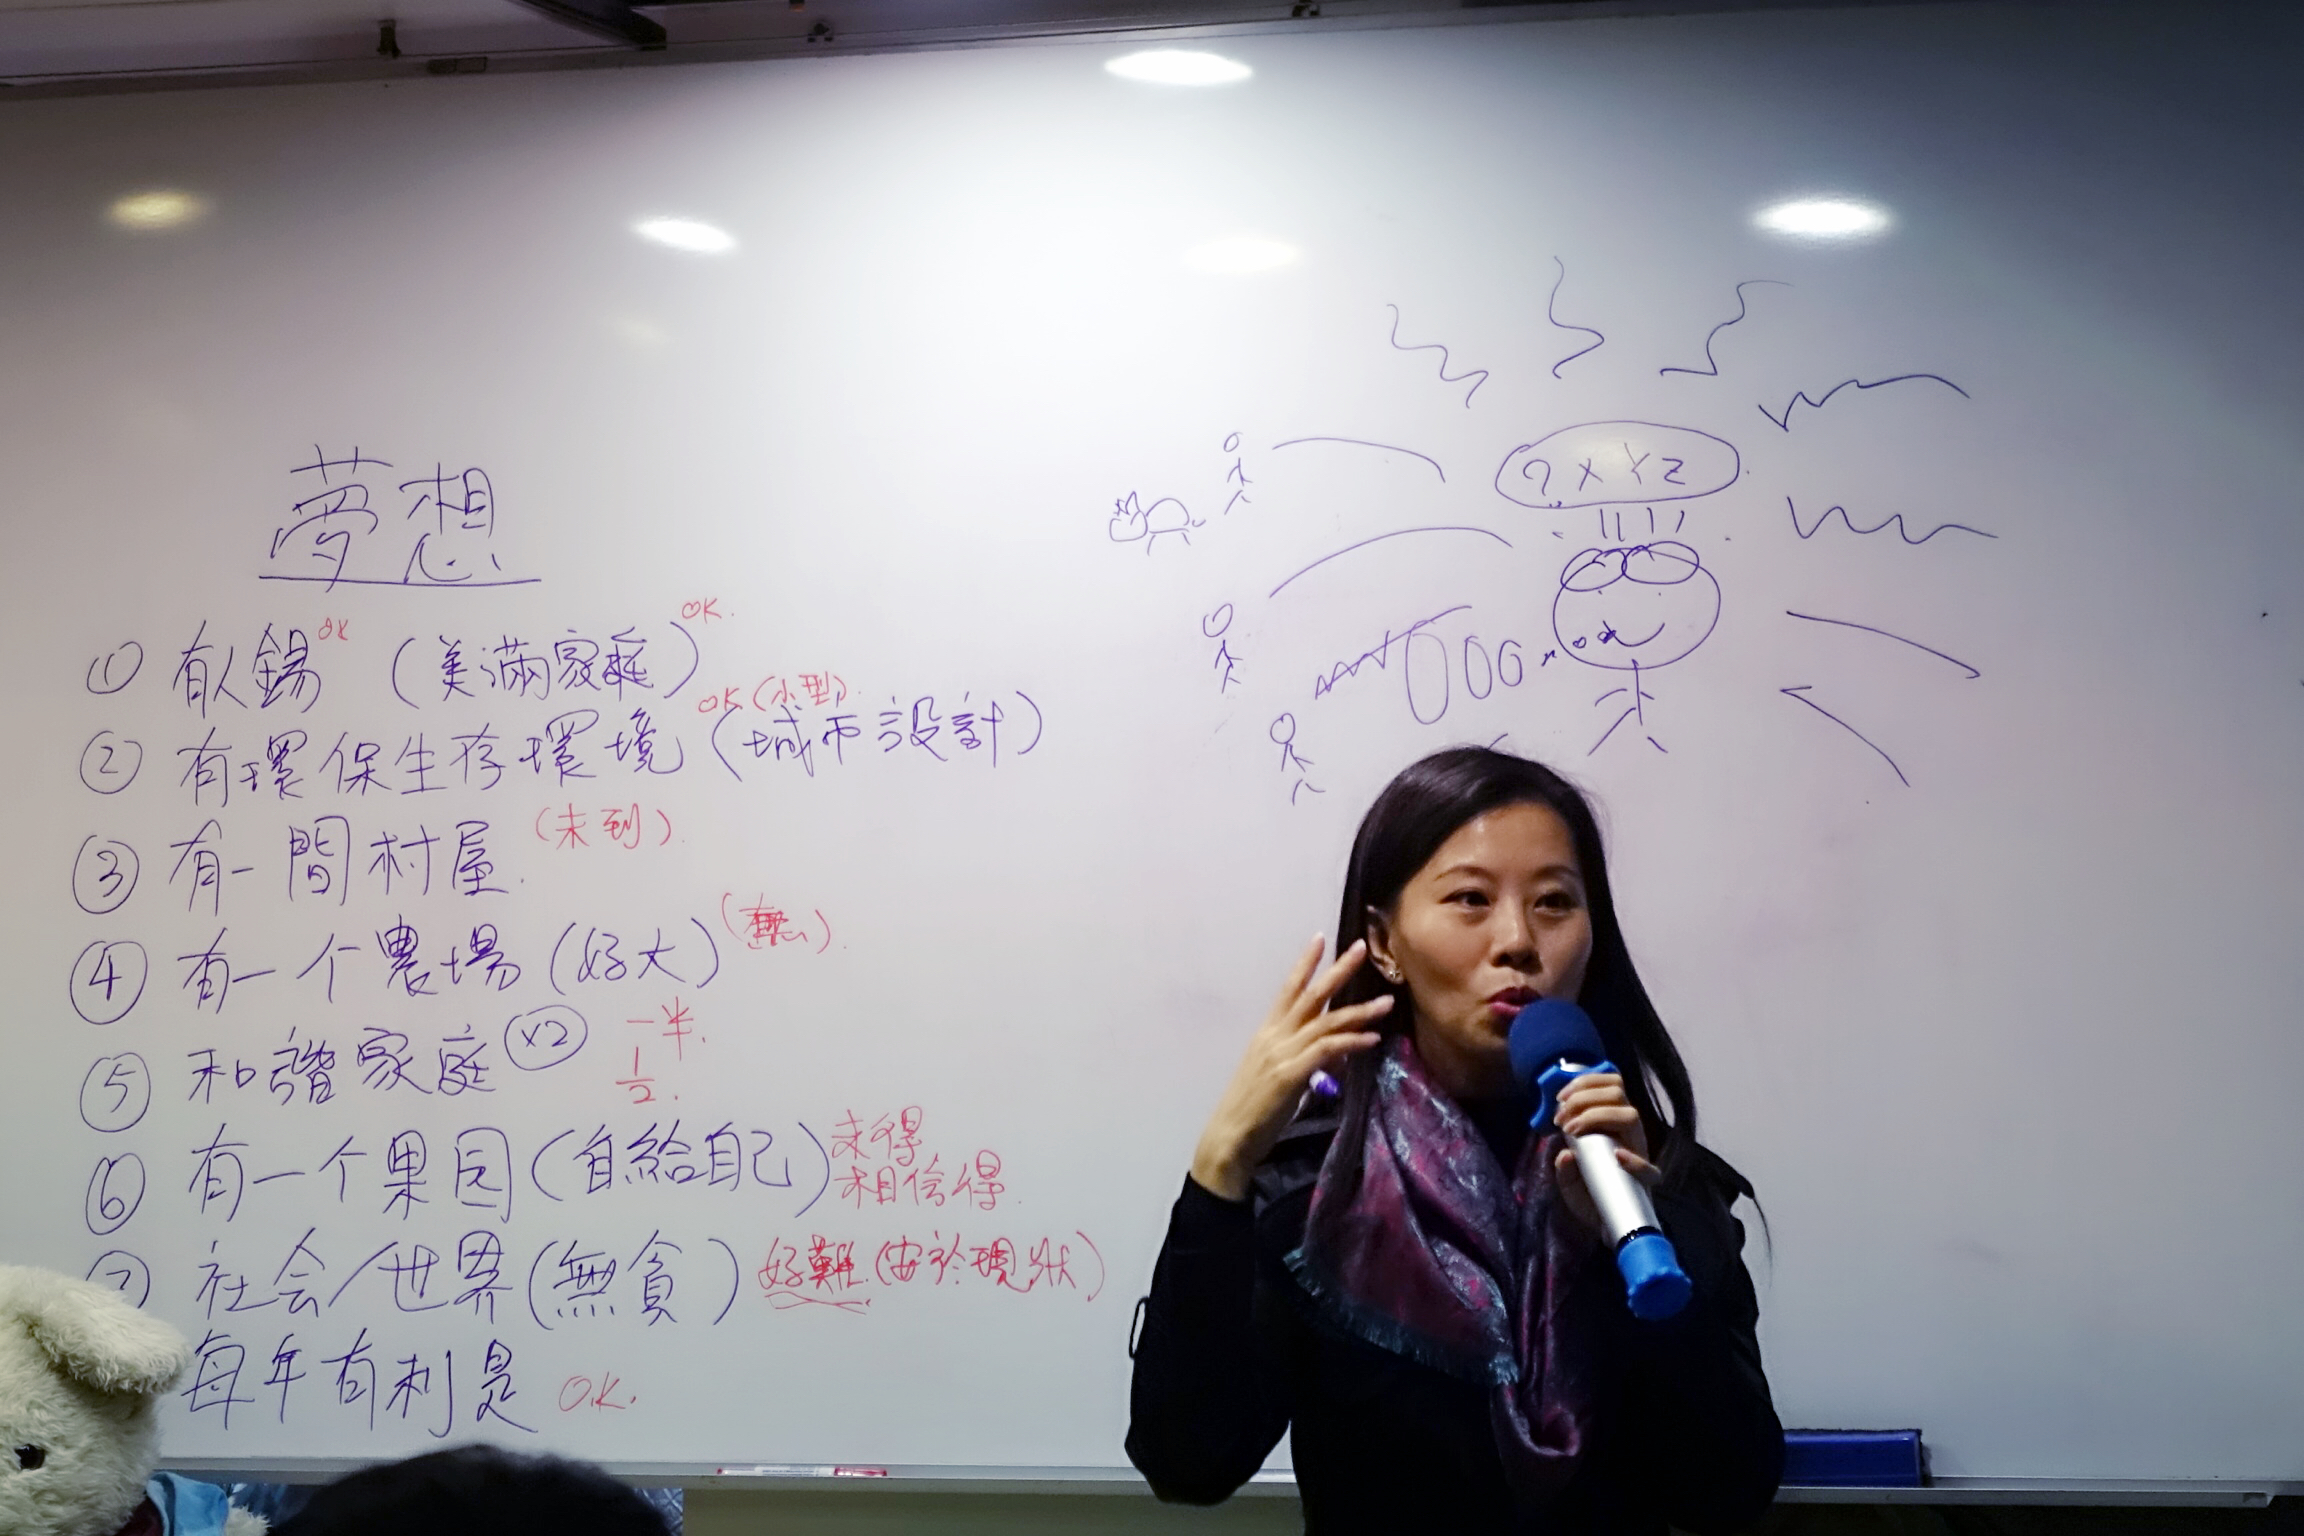 夢想
① 有人錫 OK (美滿家庭) OK.
② 有環保生存環境 (城市設計) OK (小型).
③ 有一間村屋. (未到).
④ 有一个農場 (好大) (無).
⑤ 和諧家庭 X2 一半. 1/2.
⑥ 有一个果园 (自給自己) 未得 相信得.
⑦ 社会/世界 (無貪) 好難. (安於現狀)
每年有利是 O.K.
? X Y Z